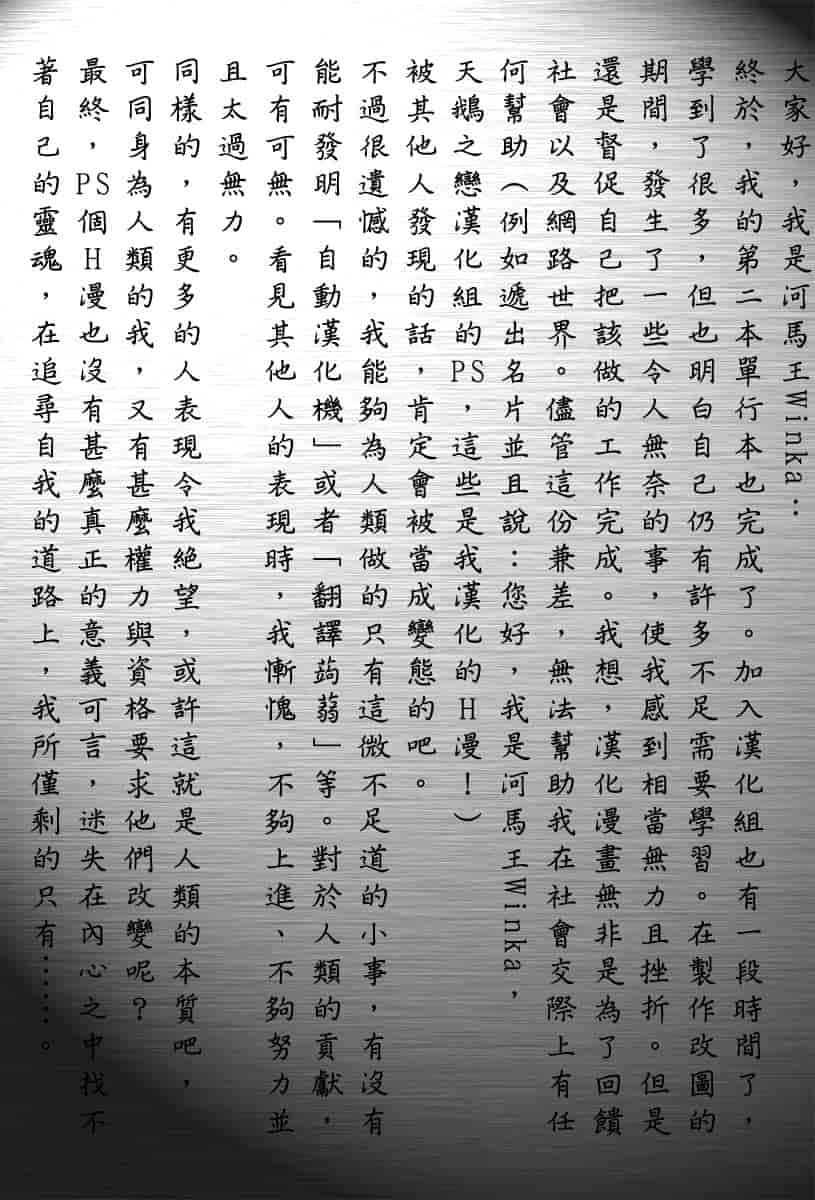 大家好，我是河馬王Winka：
終於，我的第二本單行本也完成了。加入漢化組也有一段時間了，
學到了很多，但也明白自己仍有許多不足需要學習。在製作改圖的
期間，發生了一些令人無奈的事，使我感到相當無力且挫折。但是
還是督促自己把該做的工作完成。我想，漢化漫畫無非是為了回饋
社會以及網路世界。儘管這份兼差，無法幫助我在社會交際上有任
何幫助（例如遞出名片並且說：您好，我是河馬王Winka，
天鵝之戀漢化組的PS，這些是我漢化的H漫！）
被其他人發現的話，肯定會被當成變態的吧。
不過很遺憾的，我能夠為人類做的只有這微不足道的小事，有沒有
能耐發明「自動漢化機」或者「翻譯蒟蒻」等。對於人類的貢獻，
可有可無。看見其他人的表現時，我慚愧，不夠上進、不夠努力並
且太過無力。
同樣的，有更多的人表現令我絕望，或許這就是人類的本質吧，
可同身為人類的我，又有甚麼權力與資格要求他們改變呢？
最終，PS個H漫也沒有甚麼真正的意義可言，迷失在內心之中找不
著自己的靈魂，在追尋自我的道路上，我所僅剩的只有……。